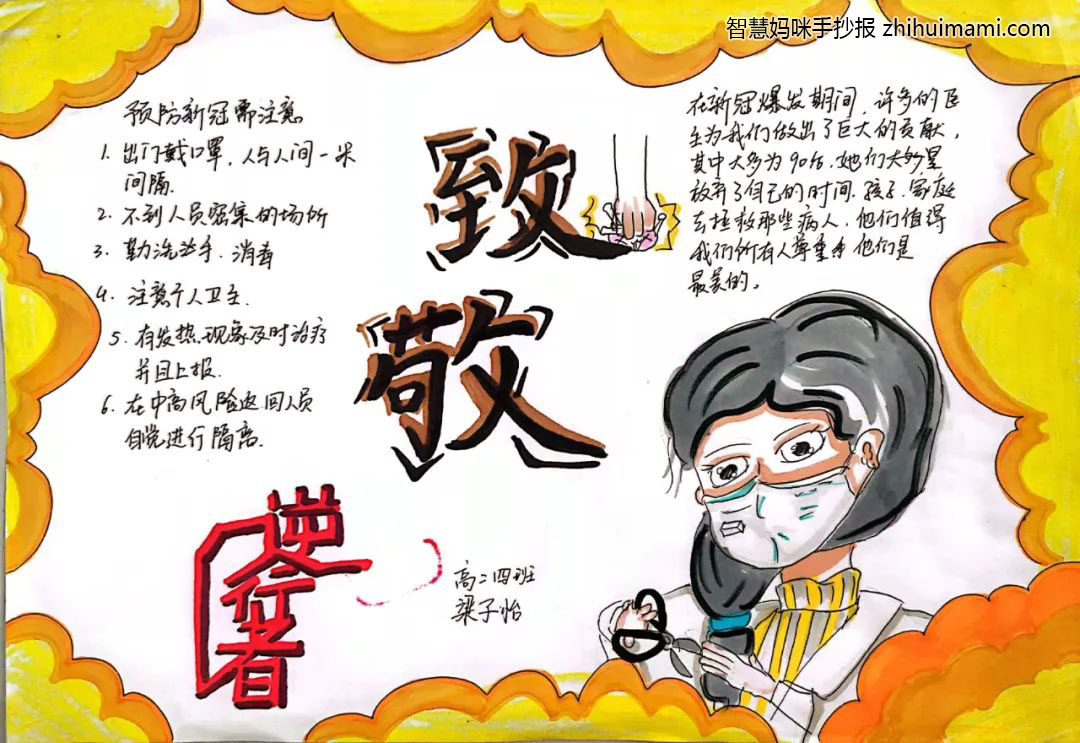 智慧妈咪手抄报 zhihuimami.com
预防新冠需注意
1. 出门戴口罩，人与人间一米
间隔.
2. 不到人员密集的场所
3. 勤洗手. 消毒
4. 注意个人卫生.
5. 有发热现象及时治疗
并且上报.
6. 在中高风险返回人员
自觉进行隔离.
致
敬
在新冠爆发期间，许多的医
生为我们做出了巨大的贡献，
其中大多为90后.她们大多是
放弃了自己的时间.孩子.家庭
去拯救那些病人，他们值得
我们所有人尊重 他们是
最美的。
逆
行
者
高二四班
梁子怡